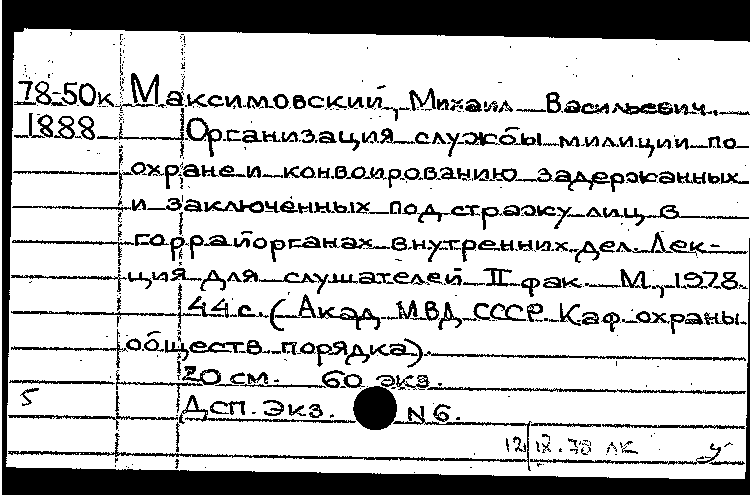 78-50к Максимовский, Михаил Васильевич.
1888 Организация службы милиции по
охране и конвоированию задержанных
и заключенных под стражу лиц в
горрайорганах внутренних дел. Лек-
ция для слушателей II фак. М., 1978.
44 с. (Акад МВД СССР. Каф. охраны
обществ. порядка).
20 см. 60 экз.
5 ДСП. Экз. N 6.
12 IX.78 ЛК